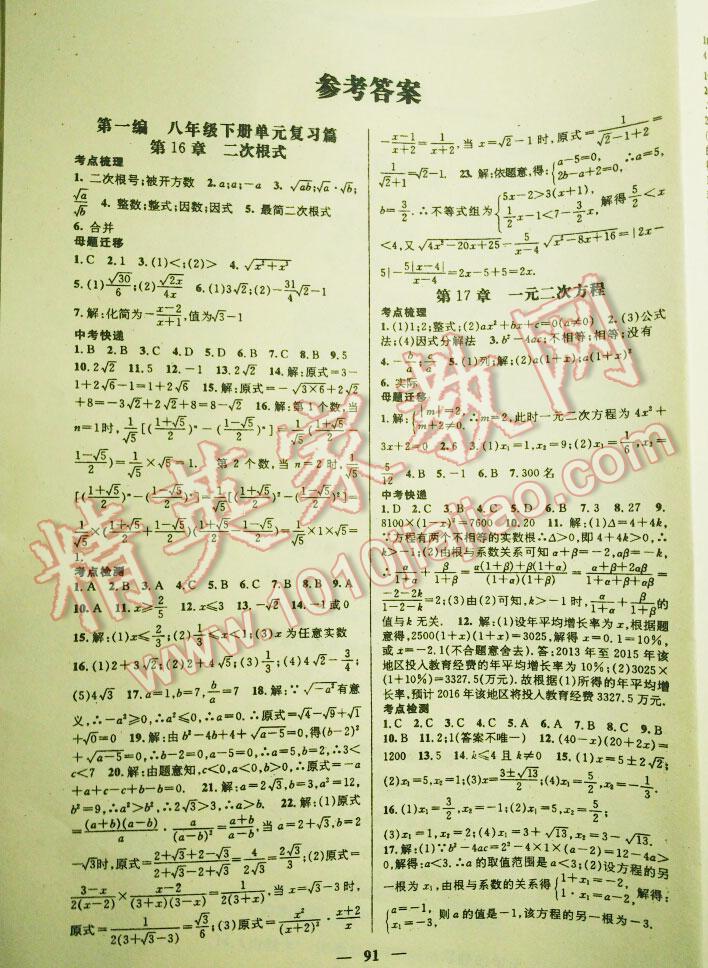 参考答案
第一编 八年级下册单元复习篇
第16章 二次根式
考点梳理
1. 二次根号;被开方数 2. a;a;-a 3. √ab;√a·√b;
√a/√b 4. 整数;整式;因数;因式 5. 最简二次根式
6. 合并
母题迁移
1. C 2. 1 3. (1)<;(2)> 4. √(x²+x⁴)
5. (1)√30/6;(2)√2x/4x 6. (1)3√2;(2)-31/4√2-1
7. 解:化简为-(x-2)/(x+1),值为√3-1
中考快递
1. B 2. B 3. C 4. D 5. D 6. B 7. C 8. B 9. 5
10. 2√2 11. 5 12. -1 13. 2 14. 解:原式=3-
1+2√6-1=1+2√6 15. 解:原式=-√(3×6)+2√2
+8=-3√2+2√2+8=8-√2 16. 解:第1个数,当
n=1时,1/√5[((1+√5)/2)ⁿ-((1-√5)/2)ⁿ]=1/√5((1+√5)/2-
(1-√5)/2)=1/√5×√5=1. 第2个数,当n=2时,1/√5
[((1+√5)/2)ⁿ-((1-√5)/2)ⁿ]=1/√5[((1+√5)/2)²-((1-√5)/2)²]
=1/√5×((1+√5)/2+(1-√5)/2)((1+√5)/2-(1-√5)/2)=1/√5×1×√5=
1.
考点检测
1. A 2. B 3. A 4. C 5. B 6. C 7. B 8. B 9. A
10. A 11. x≥2/5 12. x≤3 13. -√2 14. -1或0
15. 解:(1)x≤2/3;(2)1/2≤x<1;(3)x为任意实数
16. (1)2+3√2;(2)2+4√5;(3)1/6;(4)√3/3;
(5)4√3 17. a=1,b=7,b/a=7 18. 解:∵√(-a²)有意
义,∴-a²≥0,∴a²≤0,∴a=0.∴原式=√4-√9+√1
+√0=0 19. 解:由b²-4b+4+√(a-5)=0,得(b-2)²
+√(a-5)=0,∴b-2=0,a-5=0,∴a=5,b=2,∴3<
c<7 20. 解:由题意知,c<0,a<0,b>0,∴原式=-a
+a+c-c+b-b=0. 21. 解:a=2√3,b=3,a²=12,
b²=9,∴a²>b²,∴2√3>3,∴a>b. 22. 解:(1)原式
=(a+b)(a-b)/a·a/(a-b)²=(a+b)/(a-b),当a=2+√3,b=2
-√3时,原式=(2+√3+2-√3)/(2+√3-2+√3)=4/2√3=2√3/3;(2)原式=
(3-x)/2(x-2)×(x-2)/(3+x)(3-x)=1/2(3+x),当x=√3-3时,
原式=1/2(3+√3-3)=√3/6;(3)原式=x²/(x+2)(x-2)·(x+2)/x
-(x-1)/(x+2)=1/(x+2),当x=√2-1时,原式=1/(√2-1+2)=
1/(√2+1)=√2-1. 23. 解:依题意,得:{a-5=0, 2b-a+2=0,解得:a=5,
b=3/2.∴不等式组为{5x-2>3(x+1), 1/2x-1<7-3/2x,解得5/2<x
<4,又√(4x²-20x+25)-5/(x-4)√(x²-8x+16)=|2x-
5|-5|x-4|/(x-4)=2x-5+5=2x.
第17章 一元二次方程
考点梳理
1. (1)1;2;整式;(2)ax²+bx+c=0(a≠0) 2. (3)公式
法;(4)因式分解法 3. b²-4ac;不相等;相等;没有
4. -b/a;c/a 5. (1)列;解;(2)a(1+x);a(1+x)²
6. 实际
母题迁移
1. 解:{|m|=2, m+2≠0.∴m=2,此时一元二次方程为4x²+
3x+2=0 2. 6 3. (1)x₁=1,x₂=9;(2)x₁=1/6,x₂=
5/12 4. B 5. -1 6. B 7. 300名
中考快递
1. D 2. C 3. D 4. D 5. A 6. B 7. 3 8. 27 9.
8100×(1-x)²=7600 10. 20 11. 解:(1)Δ=4+4k,
∵方程有两个不相等的实数根∴Δ>0,即4+4k>0,∴
k>-1;(2)由根与系数关系可知α+β=-2,αβ=-k,
∴α/(1+α)+β/(1+β)=(α(1+β)+β(1+α))/(1+α)(1+β)=(α+β+2αβ)/(1+α+β+αβ)=
(-2-2k)/(1-2-k)=2;(3)由(2)可知,k>-1时,α/(1+α)+β/(1+β)的
值与k无关. 12. 解:(1)设年平均增长率为x,根据题
意得,2500(1+x)(1+x)=3025,解得x=0.1=10%,
或x=-2.1(不合题意舍去).答:2013年至2015年该
地区投入教育经费的年平均增长率为10%;(2)3025×
(1+10%)=3327.5(万元).故根据(1)所得的年平均增
长率,预计2016年该地区将投入教育经费3327.5万元.
考点检测
1. C 2. C 3. A 4. C 5. A 6. A 7. B 8. C 9. B
10. B 11. 2;1(答案不唯一) 12. (40-x)(20+2x)=
1200 13. 5 14. k≤4且k≠0 15. (1)x₁=5/2,x₂=-5/2;
(2)x₁=0,x₂=5;(3)x=(3±√13)/2;(4)x₁=3,x₂=-1/3.
16. (1)x₁=3/2,x₂=-1;(2)x₁=5,x₂=5/2;
(3)x₁=1,x₂=2;(4)x₁=3+√13,x₂=3-√13.
17. 解:(1)∵b²-4ac=2²-4×1×(a-2)=12-4a>
0,解得:a<3.∴a的取值范围是a<3;(2)设方程的另
一根为x₁,由根与系数的关系得{1+x₁=-2, 1·x₁=a-2,解得:
{a=-1, x₁=-3,则a的值是-1,该方程的另一根为-3.
— 91 —
精英家教网
www.1010jiajiao.com